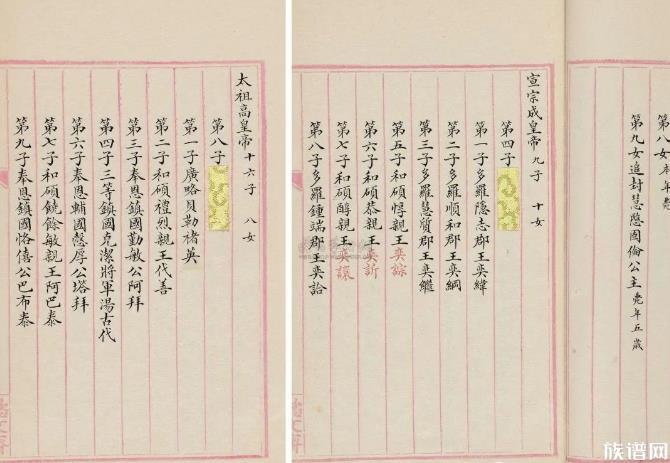 太祖高皇帝 十六子 八女
第八子
第一子廣略貝勒褚英
第二子和碩禮烈親王代善
第三子奉恩鎮國勤敏公阿拜
第四子三等鎮國克潔將軍湯古代
第六子奉恩輔國慤厚公塔拜
第七子和碩饒餘敏親王阿巴泰
第九子奉恩鎮國恪僖公巴布泰
第八女 本年
第九女追封慧愍固倫公主 年五歲
宣宗成皇帝 九子 十女
第四子
第一子多羅隱志郡王奕緯
第二子多羅順和郡王奕綱
第三子多羅慧質郡王奕繼
第五子和碩惇親王奕誴
第六子和碩恭親王奕訢
第七子和碩醇親王奕譞
第八子多羅鍾端郡王奕詥
族谱网